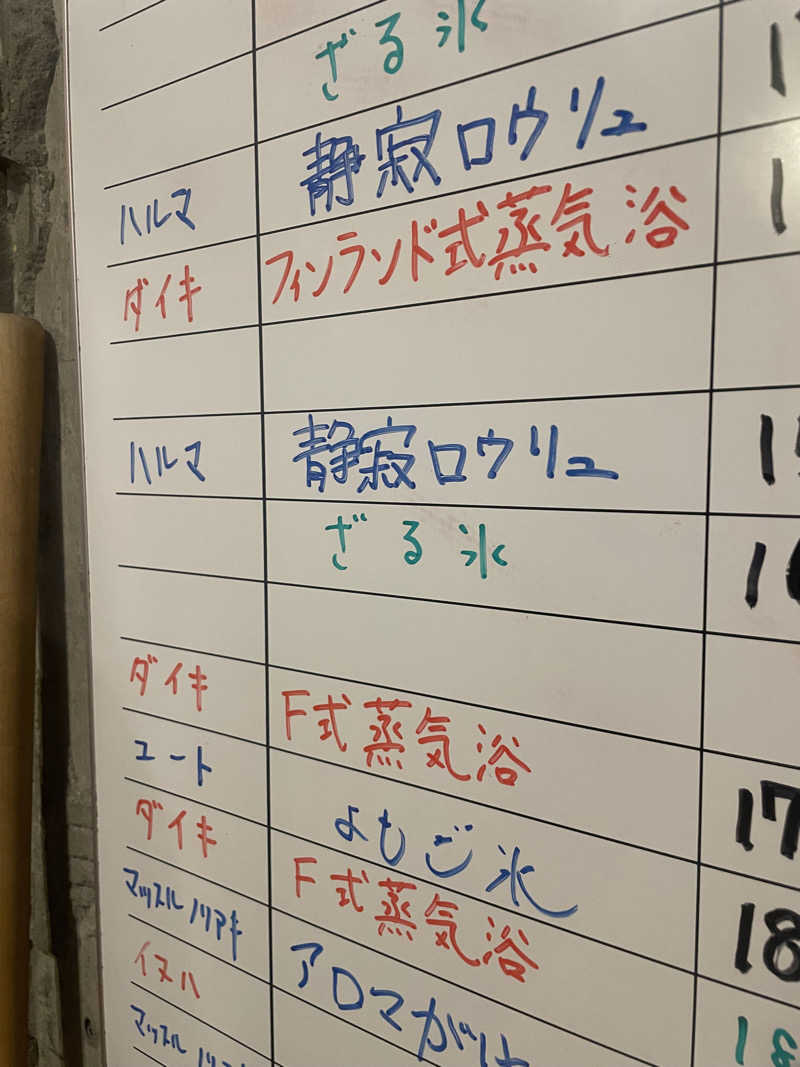 ざる氷
ハルマ 静寂ロウリュ
ダイキ フィンランド式蒸気浴
ハルマ 静寂ロウリュ
ざる氷
ダイキ F式蒸気浴
ユート よもぎ氷 17
ダイキ F式蒸気浴 18
マッスルノリアキ アロマがけ
イヌハ
マッスル